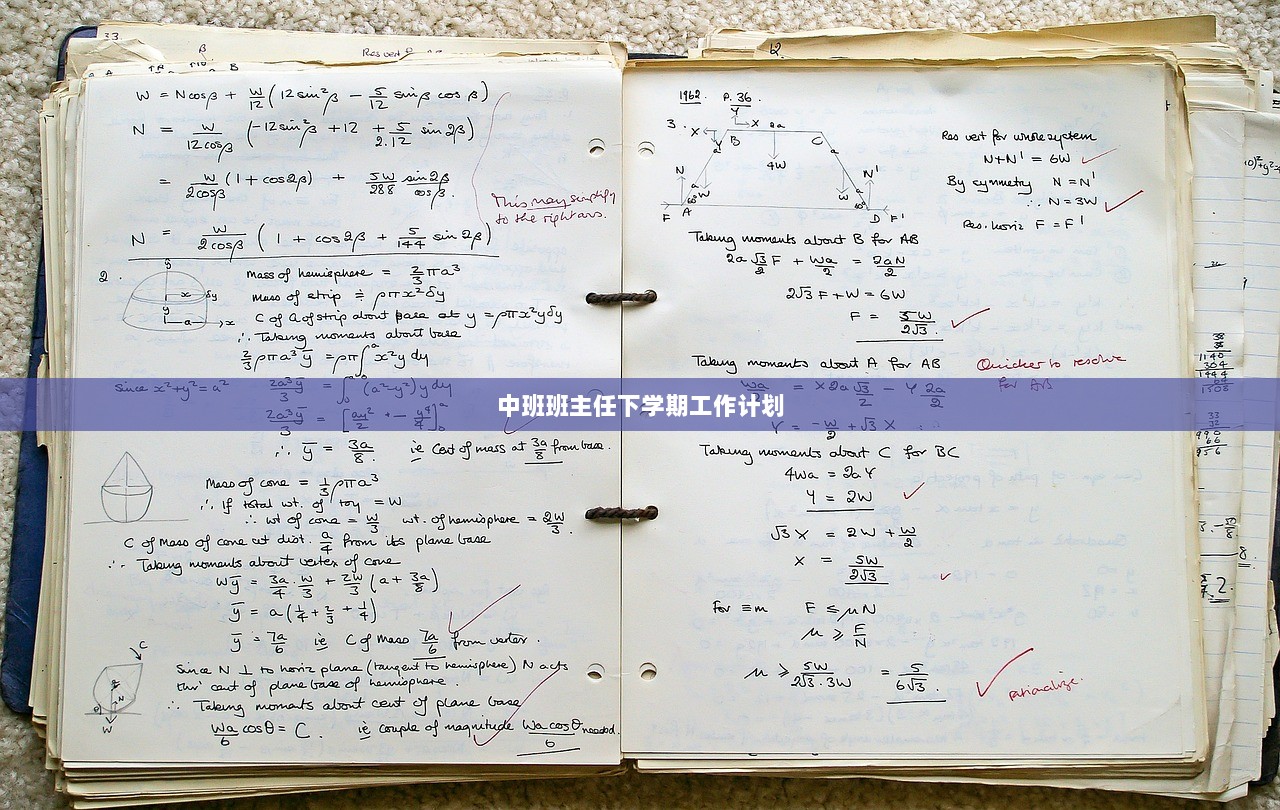 33.
Res vert
B
W = N cos β + W/12 (12 sin²β − 5/12 sin β cos β)
N = W/12 cos β (−12 sin²β + 12 + 5/2.12 sin 2β)
= W/2 cos β (1 + cos 2β) + 5W/288 sin 2β/cos β.
This may simplify
to the right ans.
N = W/2 cos β (1 + cos 2β + 5/144 sin 2β)
2.
Mass of hemisphere = 2/3 πa³
mass of strip ≑ ρπx²δy
C of G of strip about base at y = ρπx²yδy
∴ Taking moments about base
2/3 ρπa³ȳ = ρπ∫x²y dy
Since x²+y²=a² 2a³ȳ/3 = ∫(a²−y²)y dy
中班班主任下学期工作计划
∴ ȳ = 3a/8. ie Cent of mass at 3a/8 from base.
Mass of cone = 1/3 ρπa³
∴ If total wt. of toy = W
∴ wt of cone = W/3 wt. of hemisphere = 2W/3.
C of Mass of cone at dist. a/4 from its plane base
∴ Taking moments about vertex of cone
Wȳ = 3a/4 . W/3 + 2W/3 (a + 3a/8)
ȳ = a(1/4 + 2/3 + 1/4)
ȳ = 7a/6 ie C of Mass 7a/6 from vertex.
Since N ⊥ to horiz plane (tangent to hemisphere) N acts
thro' cent of plane base of hemisphere.
∴ Taking moments about cent of plane base
Wa/6 cos θ = C. ie couple of magnitude Wa cos θ/6 needed.
12
1962. P. 36.
3.
Res vert for whole system
N+N' = 6W
By symmetry N = N'
∴ N = 3W
Res. horiz F = F'
Taking moments about B for AB
2a √3/2 F + Wa/2 = 2aN/2
2√3 F + W = 6W
F = 5W/2√3.
Taking moments about A for AB
Quicker to resolve
for AB
Wa/2 = X 2a √3/2 − Y 2a/2
Y = −W/2 + √3 X
Taking moments about C for BC
4Wa = 2aY
Y = 2W
√3 X = 2W + W/2
X = 5W/2√3
For ≡m F ≤ μN
μ ≥ F/N
μ ≥ 5W/2√3.3W = 5/6√3.
rationalize.